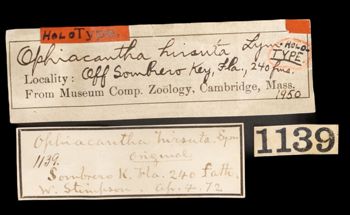 HOLOTYPE.
Ophiacantha hirsuta Lym. HOLO-
TYPE
Locality: Off Sombrero Key, Fla., 240 fms.
From Museum Comp. Zoölogy, Cambridge, Mass.
1950
Ophiacantha hirsuta Lym
1139. Original
Sombrero K. Fla. 240 fath.
W. Stimpson. Ap. 4. 72
1139